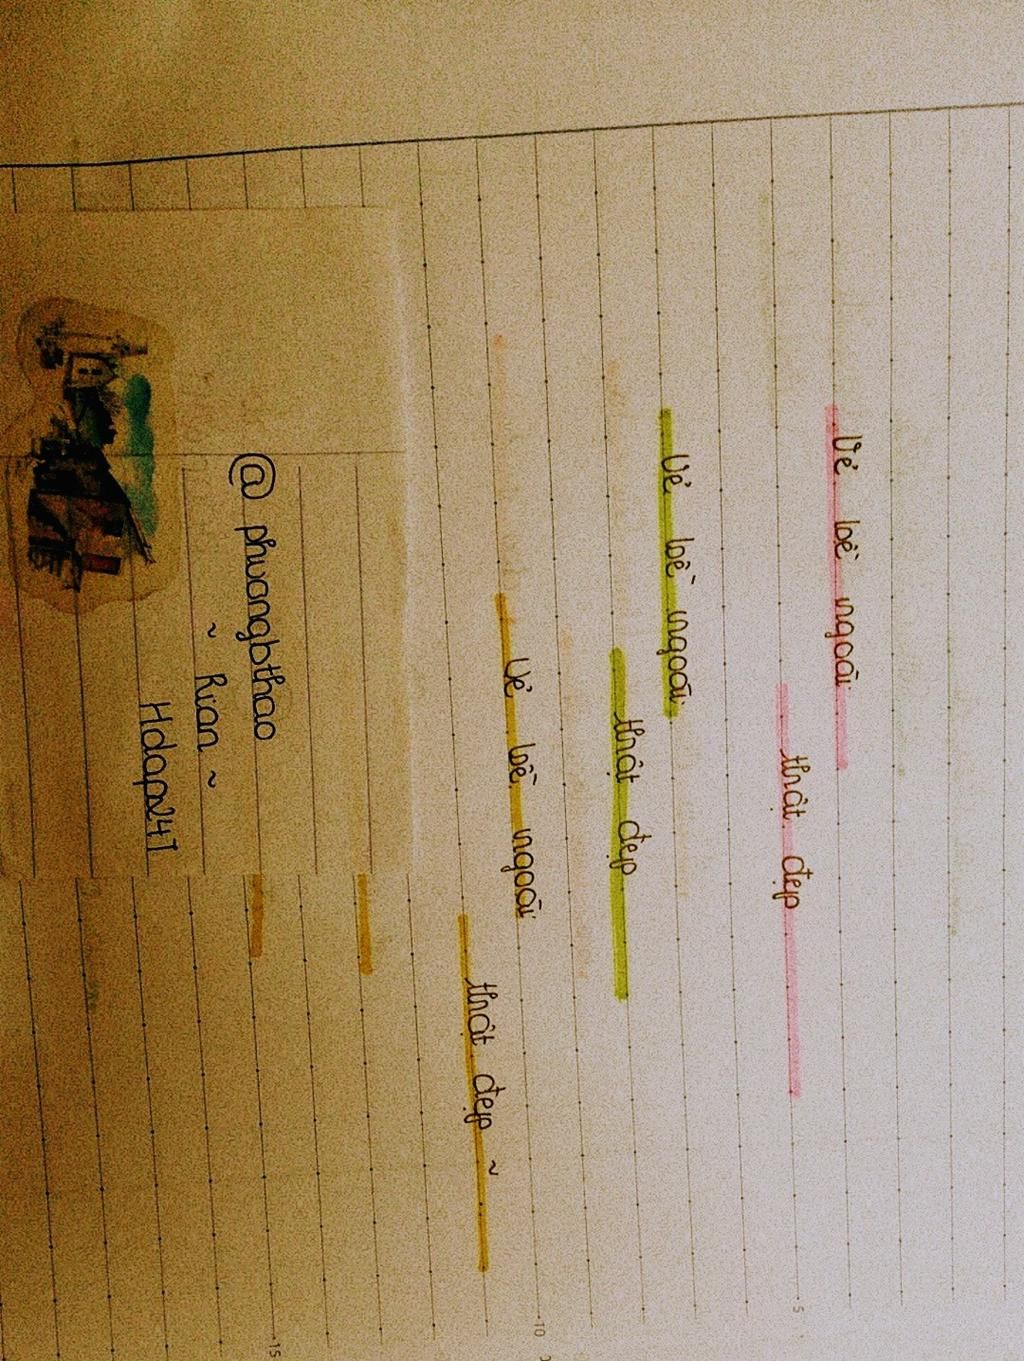 Vẻ bề ngoài
thật đẹp
Vẻ bề ngoài
thật đẹp
Vẻ bề ngoài
thật đẹp ~
@ phuongbthao
~ Rian ~
Hdap247
5
10
15